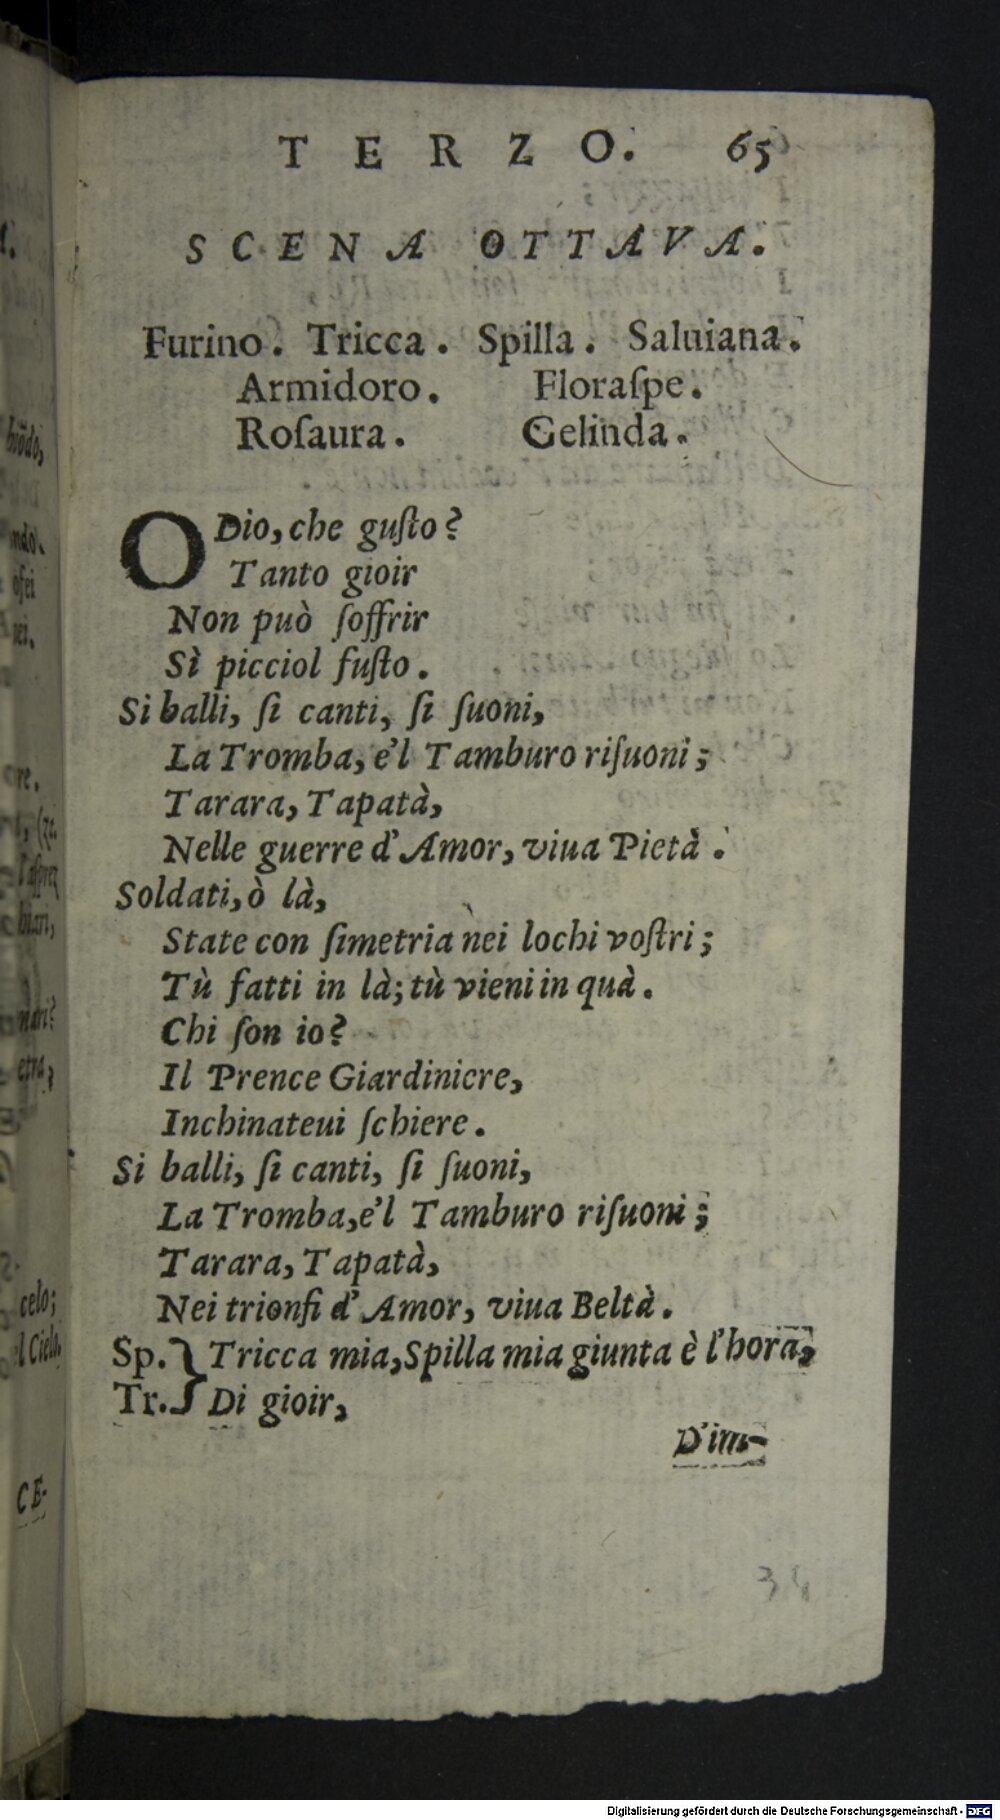 TERZO. 65
SCENA OTTAVA.
Furino. Tricca. Spilla. Saluiana.
Armidoro. Floraſpe.
Roſaura. Gelinda.
O Dio, che guſto?
Tanto gioir
Non può ſoffrir
Sì picciol fuſto.
Si balli, ſi canti, ſi ſuoni,
La Tromba, e'l Tamburo riſuoni;
Tarara, Tapatà,
Nelle guerre d'Amor, viua Pietà.
Soldati, ò là,
State con ſimetria nei lochi voſtri;
Tù fatti in là; tù vieni in quà.
Chi ſon io?
Il Prence Giardiniere,
Inchinateui ſchiere.
Si balli, ſi canti, ſi ſuoni,
La Tromba, e'l Tamburo riſuoni;
Tarara, Tapatà,
Nei trionfi d'Amor, viua Beltà.
Sp. } Tricca mia, Spilla mia giunta è l'hora,
Tr. } Di gioir,
D'im-
Digitalisierung gefördert durch die Deutsche Forschungsgemeinschaft - DFG